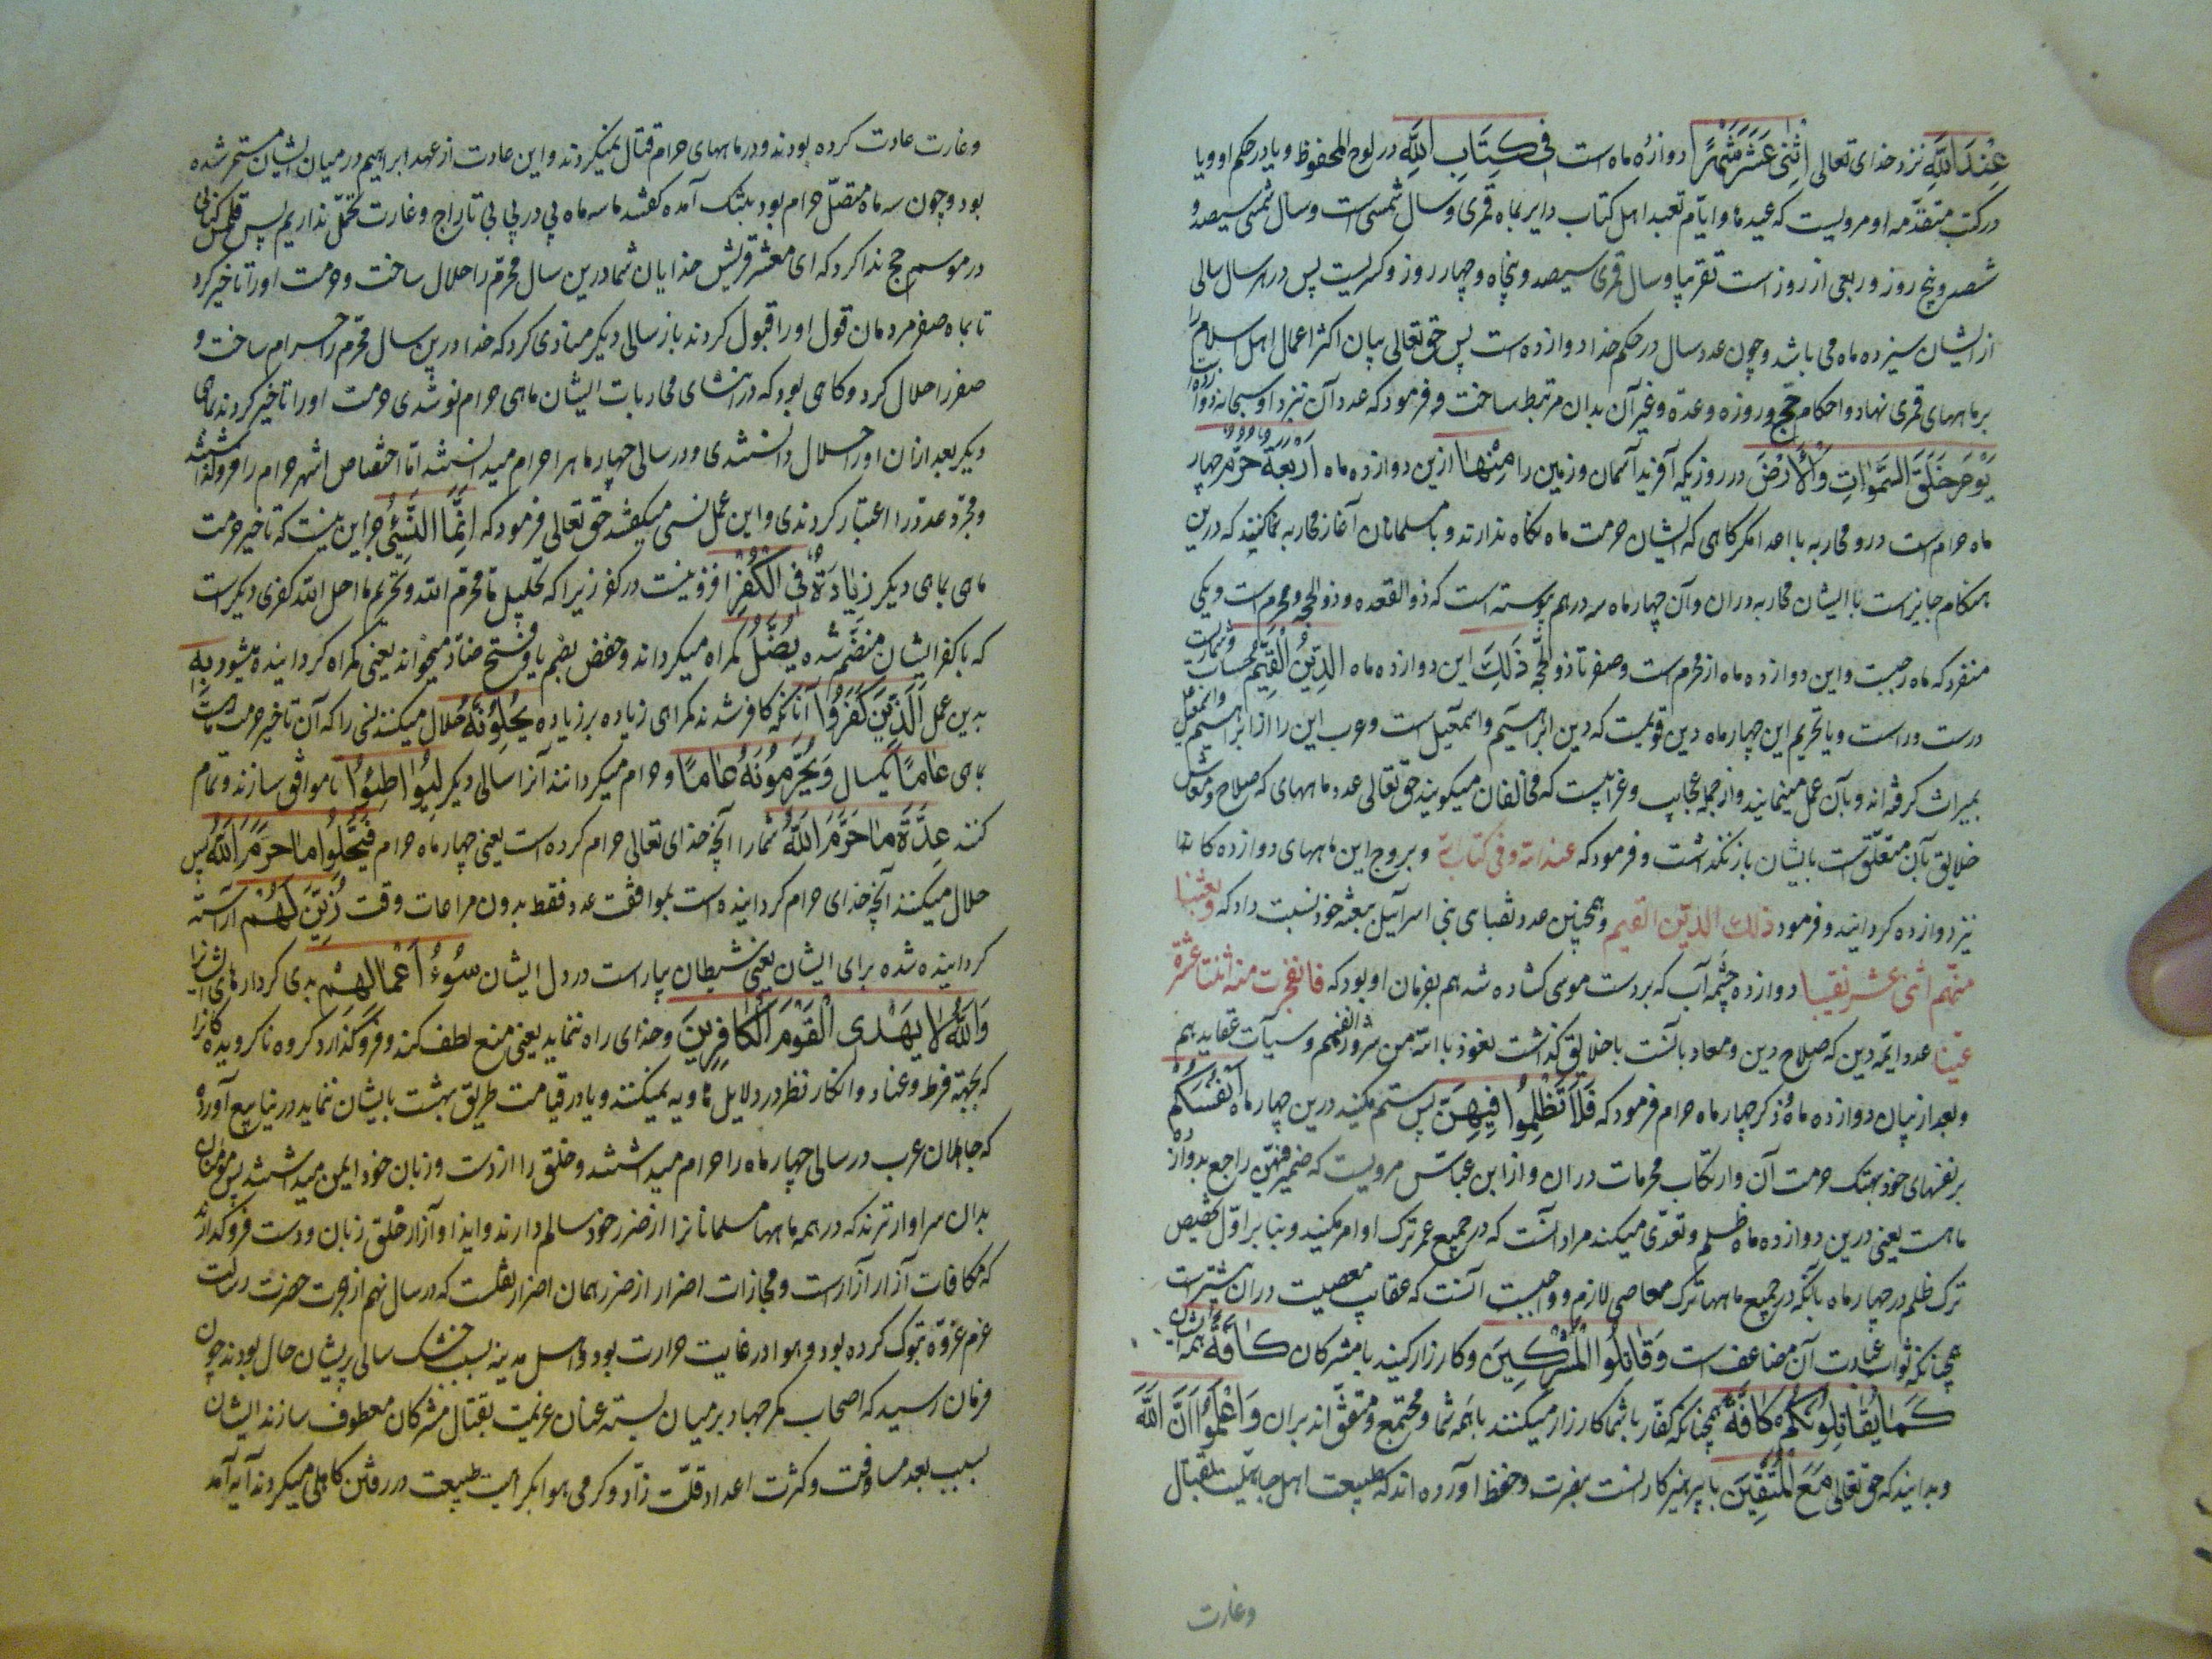 عِنْدَ اللَّهِ نزد خدای تعالی اثْنَیْ عَشَرَ شَهْرًا دوازده ماه است فِی کِتَابِ اللَّهِ در لوح المحفوظ و یا در حکم او و یا
در کتب متقدّمه او مرویست که عیدها و ایّام تعبد اهل کتاب دایر بماه قمری و سال شمسی است و سال شمسی سیصد و
شصد و پنج روز و ربعی از روز است تقریبا و سال قمری سیصد و پنجاه و چهار روز و کسریست پس در هر سال سالی
از ایشان سیزده ماه می باشد و چون عدد سال در حکم خدا دوازده است پس حق تعالی بیان اکثر اعمال اهل اسلام را
بر ماههای قمری نهاد و احکام حج و روزه و عدّه و غیر آن بدان مرتبط ساخت و فرمود که عدد آن نزد او سبحانه دوازده است
یَوْمَ خَلَقَ السَّمٰوَاتِ وَالْأَرْضَ در روزیکه آفرید آسمان و زمین را مِنْهَا ازین دوازده ماه أَرْبَعَةٌ حُرُمٌ چهار
ماه حرام است درو محاربه با اعدا مکر کاهی که ایشان حرمت ماه نکاه ندارند و با مسلمانان آغاز محاربه نمایند که درین
هنکام جایز است با ایشان محاربه دران و آن چهار ماه سه در هم پیوسته است که ذوالقعده و ذوالحجه و محرم است و یکی
منفرد که ماه رجبست و این دوازده ماه از محرم است و صفر تا ذوالحجّه ذٰلِکَ این دوازده ماه الدِّینُ الْقَیِّمُ حساب و شمارست
درست و راست و یا تحریم این چهار ماه دین قویمست که دین ابراهیم و اسمعیل است و عرب این را از ابراهیم و اسمعیل
بمیراث کرفته اند و بآن عمل مینمایند و از جمله عجایب و غرایبست که مخالفان میکویند حق تعالی عدد ماههای که صلاح و معاش
خلایق بآن متعلّق است بایشان باز نکذاشت و فرمود که عند الله و فی کتاب الله و بروج این ماههای دوازده کانه را
نیز دوازده کردانید و فرمود ذلک الدین القیم و همچنین عدد نقبای بنی اسرائیل ببعثه خود نسبت داد که و بعثنا
منهم اثنی عشر نقیبا دوازده چشمه آب که بر دست موسی کشاده شد هم بفرمان او بود که فانفجرت منه اثنتا عشرة
عینا عدد ائمّه دین که صلاح دین و معاد بآنست با خلایق کذاشت نعوذ بالله من شرور انفسهم و سیآت عقایدهم
و بعد از بیان دوازده ماه و ذکر چهار ماه حرام فرمود که فَلَا تَظْلِمُوا فِیهِنَّ پس ستم مکنید درین چهار ماه أَنْفُسَکُمْ
بر نفسهای خود بهتک حرمت آن و ارتکاب محرمات دران و از ابن عباس مرویست که ضمیر فیهنّ راجع بدوازده
ماهست یعنی درین دوازده ماه ظلم و تعدّی میکنند مراد آنست که در جمیع عمر ترک اوامر مکنید و بنا بر اوّل تخصیص
ترک ظلم در چهار ماه بآنکه در جمیع ماهها ترک معاصی لازم و واجبست آنست که عقاب معصیت دران بیشترست
همچنانکه ثواب عبادت آن مضاعف است وَ قَاتِلُوا الْمُشْرِکِینَ و کارزار کنید با مشرکان کَافَّةً همه ایشان
کَمَا یُقَاتِلُونَکُمْ کَافَّةً همچنانکه کفّار با شما کارزار میکنند با همه شما و مجتمع و متفق اند بران وَ اعْلَمُوا أَنَّ اللَّهَ
و بدانید که حق تعالی مَعَ الْمُتَّقِینَ با پرهیزکارانست بنصرت و حفظ آورده اند که طبیعت اهل جاهلیت بقتال
وغارت
وغارت عادت کرده بودند و در ماههای حرام قتال نمیکردند و این عادت از عهد ابراهیم در میان ایشان مستمر شده
بود و چون سه ماه متصّل حرام بود بتنک آمده کفتند ما سه ماه پی در پی بی تاراج و غارت تحمّل نداریم پس قلمس کنانی
در موسم حج ندا کرد که ای معشر قریش خدایان شما درین سال محرّم را حلال ساخت و حرمت او را تاخیر کرد
تا بماه صفر مردمان قول او را قبول کردند باز سالی دیکر منادی کرد که خدا درین سال محرّم را حرام ساخت و
صفر را حلال کرد و کاهی بود که در اثنای محاربات ایشان ماهی حرام نو شدی حرمت او را تاخیر کردند بماهی
دیکر بعد ازان او را حلال دانستندی و در سالی چهار ماه را حرام میدانستند امّا اختصاص اشهر حرام را فرو کذاشتند
و مجرّد عدد را اعتبار کردندی و این عمل نسی میکفتند حق تعالی فرمود که إِنَّمَا النَّسِیءُ جز این نیست که تاخیر حرمت
ماهی بماهی دیکر زِیَادَةٌ فِی الْکُفْرِ افزونیست در کفر زیرا که تحلیل ما حرّم الله و تحریم ما احل الله کفری دیکرست
که با کفر ایشان منضّم شده یُضَلُّ کمراه میکرداند و حفض بضم یا و فتح ضاد میخواند یعنی کمراه کردانیده میشود بِهِ
بدین عمل الَّذِینَ کَفَرُوا آنانکه کافر شدند کمراهی زیاده بر زیاده یُحِلُّونَهُ حلال میکنند نسی را که آن تاخیر حرمت ماهست
بماهی عَامًا یکسال وَ یُحَرِّمُونَهُ عَامًا و حرام میکردانند آنرا سالی دیکر لِیُوَاطِئُوا تا موافق سازند و تمام
کنند عِدَّةَ مَا حَرَّمَ اللَّهُ شمار آنچه خدای تعالی حرام کرده است یعنی چهار ماه حرام فَیُحِلُّوا مَا حَرَّمَ اللَّهُ پس
حلال میکنند آنچه خدای حرام کردانیده است بموافقت عدد فقط بدون مراعات وقت زُیِّنَ لَهُمْ آراسته
کردانیده شده برای ایشان یعنی شیطان بیاراست در دل ایشان سُوءُ أَعْمَالِهِمْ بدی کردارهای ایشانرا
وَاللَّهُ لَا یَهْدِی الْقَوْمَ الْکَافِرِینَ و خدای راه ننماید یعنی منع لطف کند و فرو کذارد کروه ناکرویده کانرا
که بجهة فرط و عناد و انکار نظر در دلایل هادیه نمیکنند و یا در قیامت طریق بهشت بایشان ننماید در ینابیع آورده
که جاهلان عرب در سالی چهار ماه را حرام میداشتند و خلق را از دست و زبان خود ایمن میداشتند پس مؤمنان
بدان سزاوارترند که در همه ماهها مسلمانانرا از ضرر خود سالم دارند و ایذا و آزار خلق زبان و دست فرو کذارند
که مکافات آزار آزارست و مجازات اضرار از ضرر همان اضرار نقلست که در سال نهم از هجرت حضرت رسالت
عزم غزوة تبوک کرده بود و هوا در غایت حرارت بود و اهل مدینه بسبب خشک سالی پریشان حال بودند چون
فرمان رسید که اصحاب کمر جهاد بر میان بسته عنان عزیمت بقتال مشرکان معطوف سازند ایشان
بسبب بعد مسافت و کثرت اعدا و قلّت زاد و کرمی هوا بکراهیت طبیعت در رفتن کاهلی میکردند آیه آمد